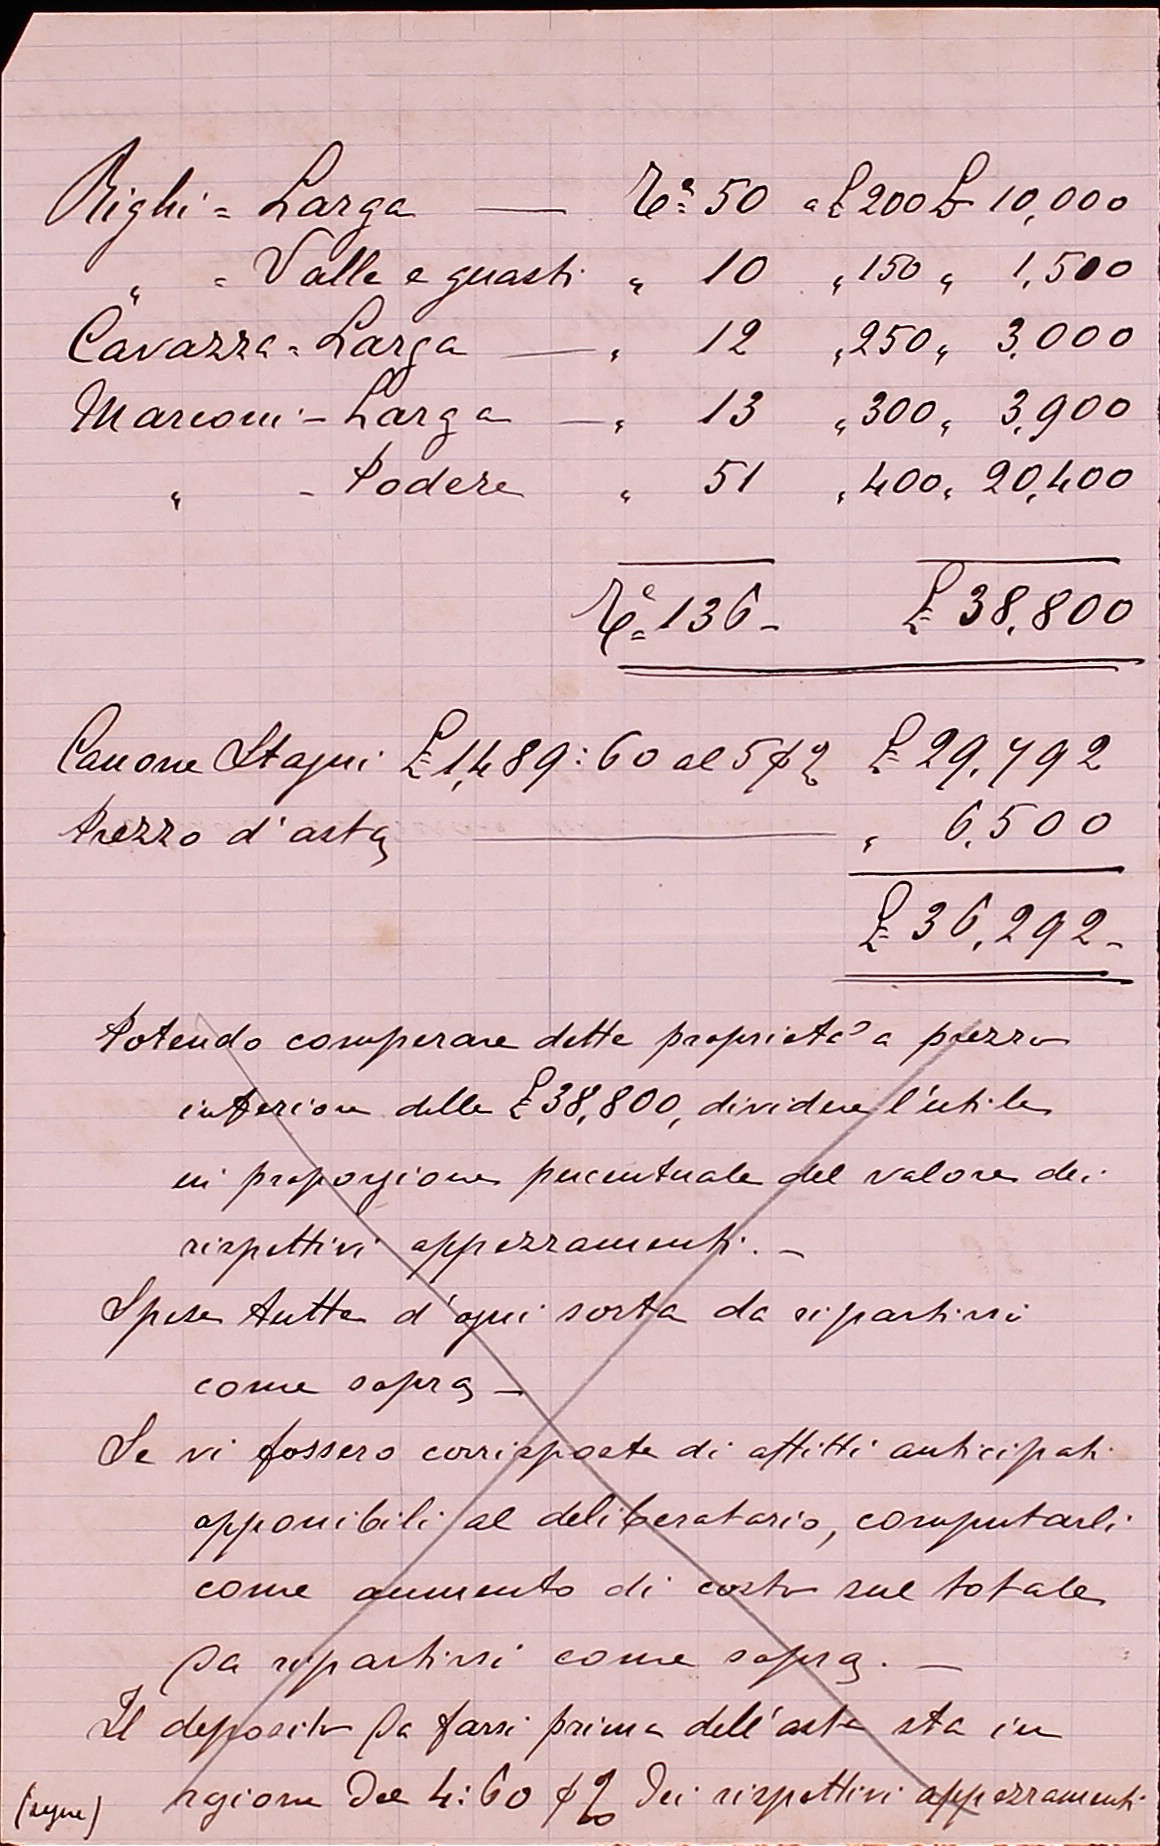 Righi = Larga — Te 50 a £ 200 £ 10,000
" = Valle e guasti " 10 " 150 " 1,500
Cavazza = Larga — " 12 " 250 " 3,000
Marconi - Larga — " 13 " 300 " 3,900
" - Podere " 51 " 400 " 20,400
Te 136 - £ 38,800
Canone Stagni £ 1,489:60 al 5 % £ 29,792
Prezzo d'asta — " 6,500
£ 36,292 -
Potendo comperare dette proprietà a prezzo
inferiore delle £ 38,800, dividere l'utile
in proporzione percentuale del valore dei
rispettivi appezzamenti. -
Spese tutte d'ogni sorta da ripartirsi
come sopra -
Se vi fossero corrisposte di affitti anticipati
opponibili al deliberatario, computarli
come aumento di costo sul totale
da ripartirsi come sopra. -
Il deposito da farsi prima dell'asta sta in
ragione del 4:60 % dei rispettivi appezzamenti
(segue)